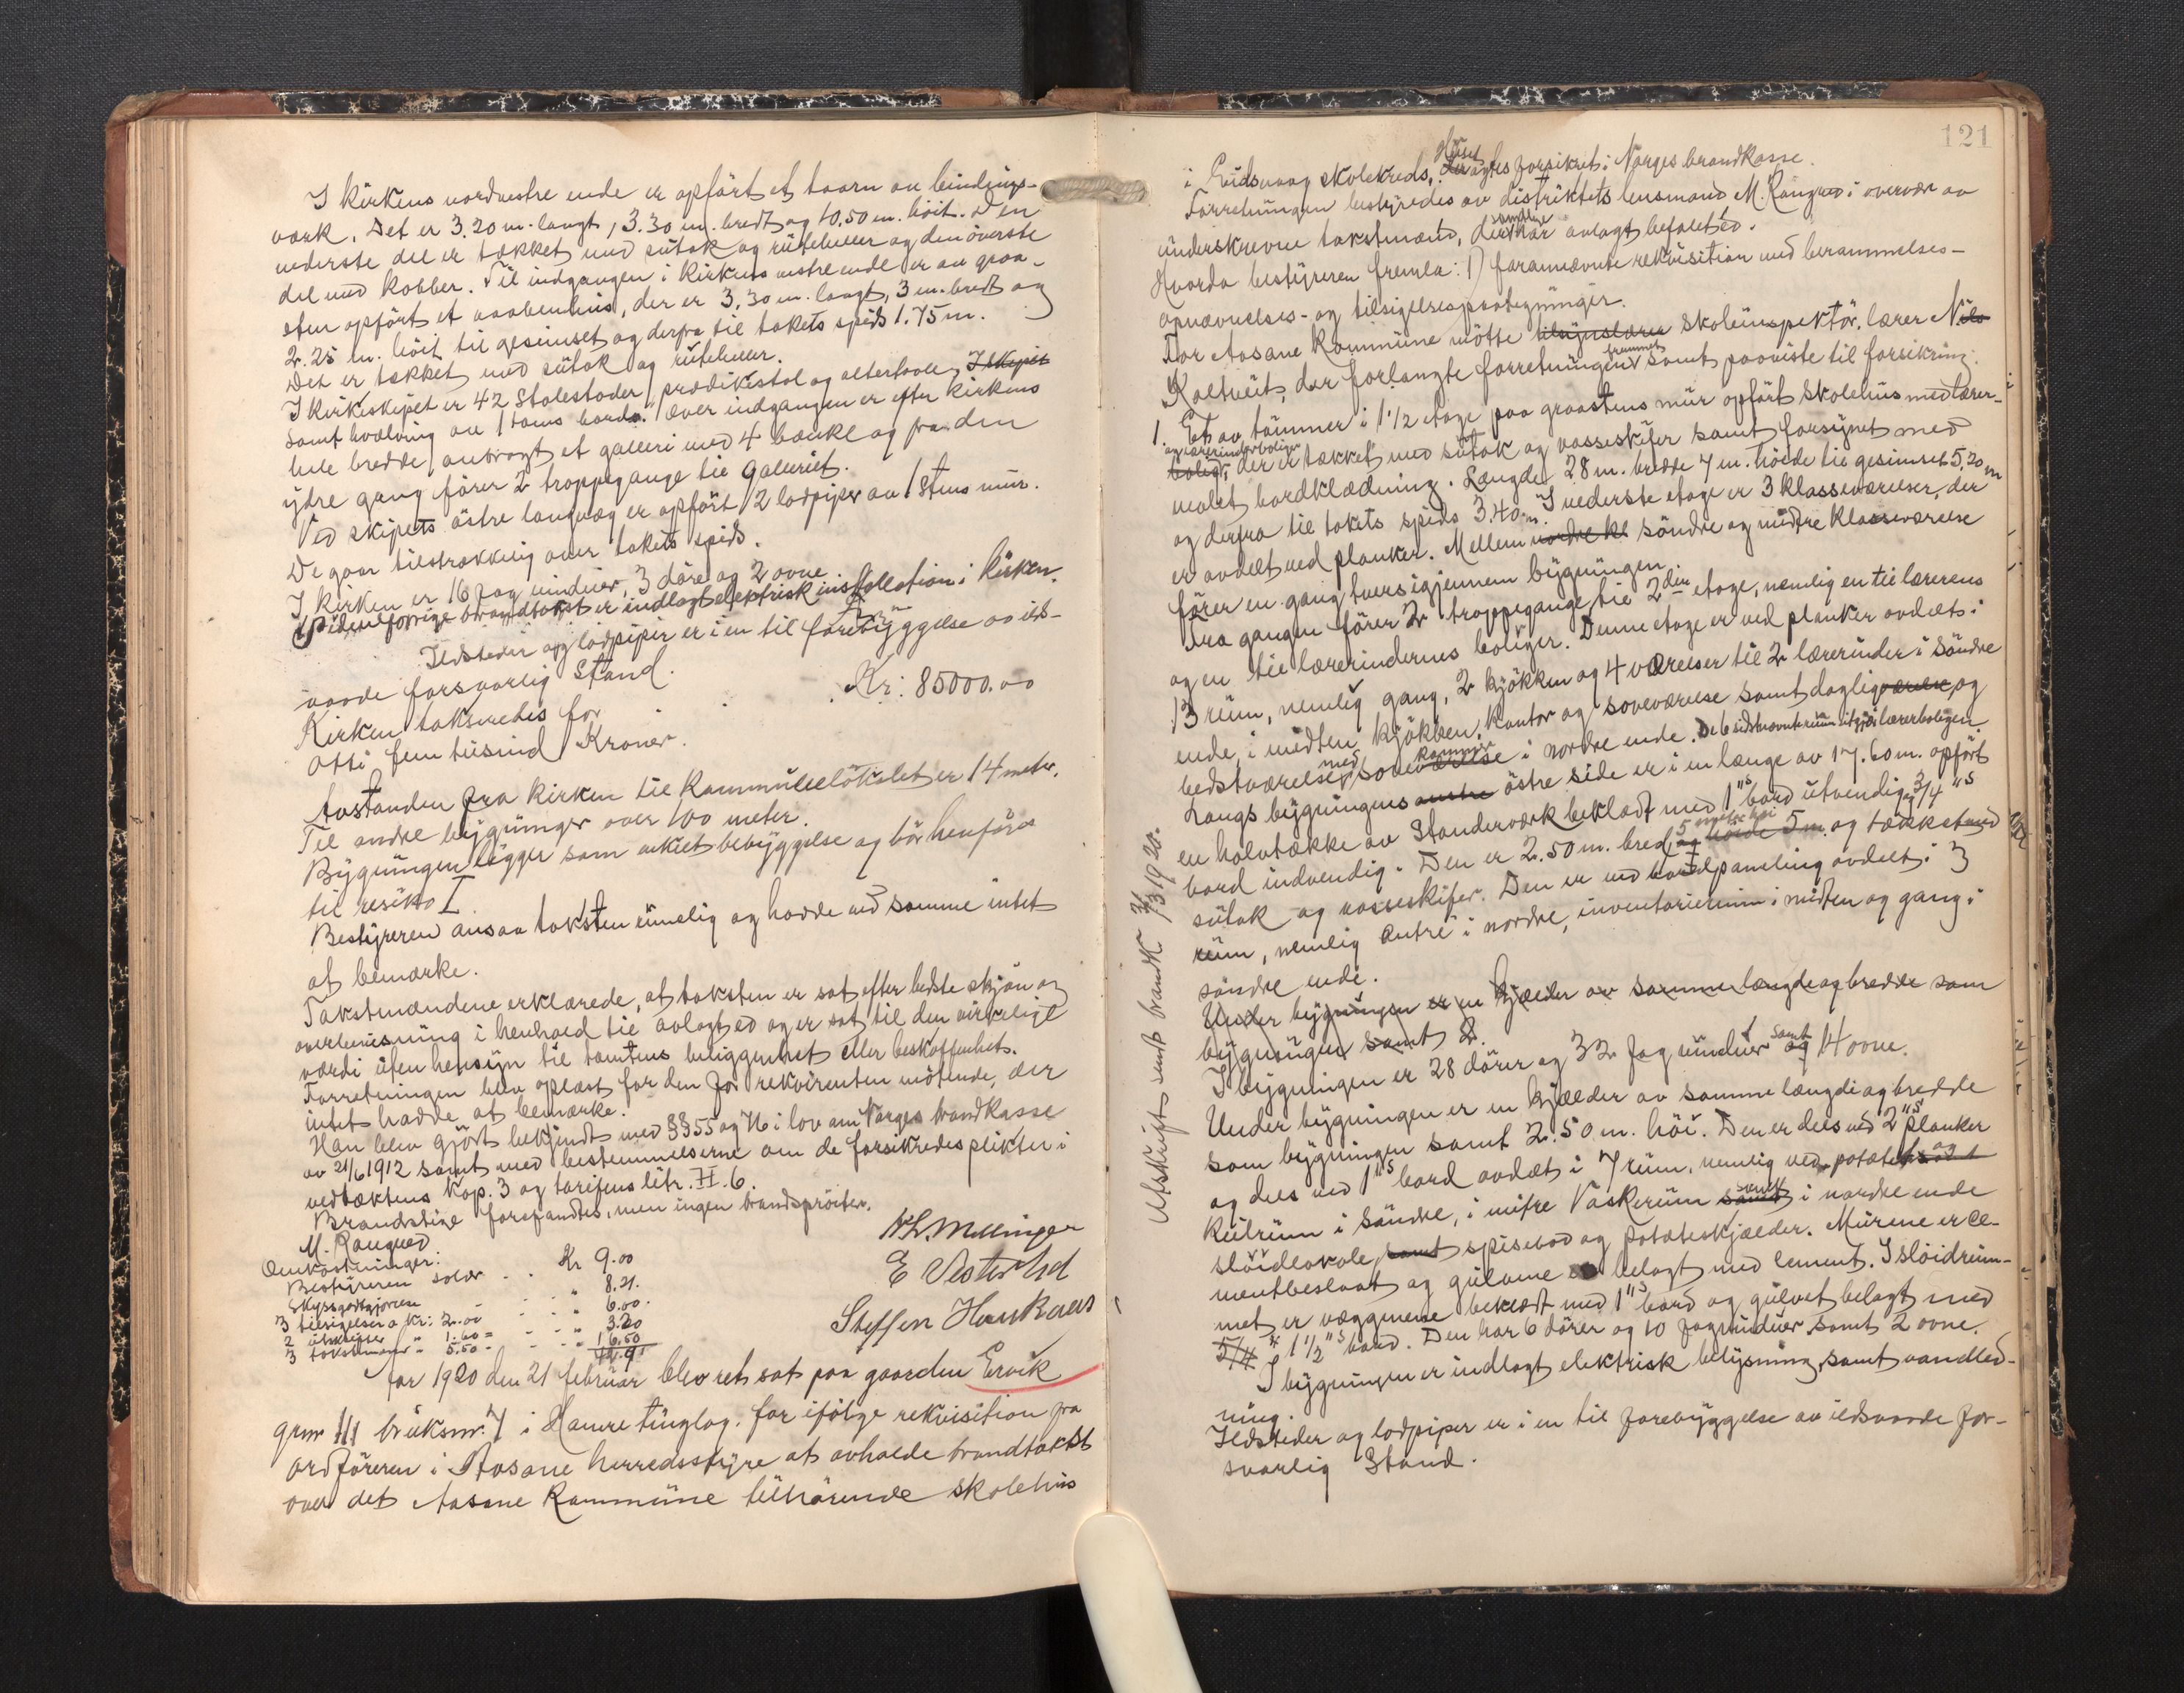 I kirkens nordvestre ende er opført et taarn av bindings-
værk. Det er 3.20 m. langt, 3.30 m. bredt og 10.50 m. høit. Den
nederste del er tækket med sutak og ruteheller og den øverste
del med kobber. Til indgangen i kirkens vestre ende er av graa-
sten opført et vaabenhus, der er 3.30 m. langt, 3 m. bredt og
2.25 m. høit til gesimset og derfra til takets spids 1.75 m.
Det er tækket med sutak og ruteheller.
I kirkeskipet er 42 Stolestader, prædikestol og altertavle, I skipet
samt hvælving av 1 toms bord. Over indgangen er efter kirkens
hele bredde anbragt et galleri med 4 bænke og fra den
ydre gang fører 2 troppegange til galleriet.
Ved skipets østre langvæg er opført 2 lodpiper av 1 Stens mur.
De gaar tilstrækkelig over takets spids.
I kirken er 16 fag vinduer, 3 døre og 2 ovne.
Siden forrige brandtakst er indlagt elektrisk installation i kirken.
Ildsteder og lodpiper er i en til forebyggelse av ilds-
vaade forsvarlig Stand.
Kirken takseredes for . . . Kr: 85000.00
Otti fem tusind Kroner.
Avstanden fra kirken til Kommunelokalet er 14 meter.
Til andre bygninger over 100 meter.
Bygningen ligger som enkelt bebyggelse og bør henføres
til resiko I.
Bestyreren ansaa taksten rimelig og hadde ved samme intet
at bemærke.
Takstmændene erklærede, at taksten er sat efter bedste skjøn og
overbevisning i henhold til avlagt ed og er sat til den virkelige
værdi uten hensyn til tomtens beliggenhet eller beskaffenhet.
Forretningen blev oplæst for den for rekvirenten møtende, der
intet hadde at bemærke.
Han blev gjort bekjendt med §§ 55 og 76 i lov om Norges brandkasse
av 21/6 1912 samt med bestemmelserne om de forsikredes plikter i
vedtæktens Kap. 3 og tarifens litr. H. 6.
Brandstige forefandtes, men ingen brandsprøiter.
M. Rangved.
H. L. Mellinger
Omkostninger:
Bestyreren salær . . Kr 9.00
E Vesterlid
Skyssgodtgjørelse - . . " 8.21.
3 tilsigelser a Kr: 2.00 - . . " 6.00.
2 utskrifter " 1.60 = - . " 3.20
Steffen Haukaas
3 takstmænd " 5.50 = - . " 16.50
Aar 1920 den 21 februar blev ret sat paa gaarden Ervik
grnr 111 bruksnr. 7 i Hamre tinglag. for ifølge rekvisition fra
ordføreren i Aasane herredsstyre at avholde brandtakst
over det Aasane Kommune tilhørende skolehus
121
i Eidsvaag skolekreds. Huset der agtes forsikret i Norges brandkasse.
Forretningen bestyredes av distriktets lensmand M. Rangved i overvær av
underskrevne takstmænd, der samtlige har avlagt befalet ed.
Hvorda bestyreren fremla: 1) foranævnte rekvisition med berammelses-
opnævnelses- og tilsigelsespaategninger.
For Aasane Kommune møtte tilsynslærer skoleinspektør, lærer Nils
Kaltveit, der forlangte forretningen fremmet samt paaviste til forsikring:
1. Et av tømmer i 1 1/2 etage paa graastens mur opført skolehus med lærer-
og lærerinderboliger
bolig, der er tækket med sutak og vosseskifer samt forsynet med
malet bordklædning. Længde 28 m. bredde 7 m. høide til gesimset 5,20 m
og derfra til takets spids 3.40 m. I nederste etage er 3 klasseværelser, der
er avdelt ved planker. Mellem nordre kl søndre og midtre klasseværelse
fører en gang tvers igjennem bygningen.
Fra gangen fører 2 troppegange til 2den etage, nemlig en til lærerens
og en til lærerindernes boliger. Denne etage er ved planker avdelt i
13 rum, nemlig gang, 2 kjøkken og 4 værelser til 2 lærerinder i søndre
ende, i midten kjøkken, kontor og soveværelse samt dagligværelse og
bedstværelse med soveværelse kammer i nordre ende. De 6 sidstnævnte rum utgjør lærerboligen.
Langs bygningens østre side er i en længe av 17.60 m. opført
en halvtække av Standerværk beklædt med 1"s bord utvendig og 3/4"s
bord indvendig. Den er 2.50 m. bred, 5 meter høi og høide 5 m. og tækket med
sutak og vosseskifer. Den er ved bordpaneling avdelt i 3
rum, nemlig Entré i nordre, inventarierum i midten og gang i
søndre ende.
Under bygningen er en kjælder av samme længde og bredde som
bygningen samt 2.
I bygningen er 28 dører og 32 fag vinduer samt og 14 ovne.
Under bygningen er en kjælder av samme længde og bredde
som bygningen samt 2.50 m. høi. Den er dels ved 2"s planker
og dels ved 1"s bord avdelt i 7 rum, nemlig ved- potatet- og
kulrum i søndre, i mitre Vaskerum samt i nordre ende
sløidlokale, samt spisebod og potateskjælder. Murene er ce-
mentbeslaat og gulvene belagt med cement. I sløidrum-
met er væggene beklædt med 1"s bord og gulvet belagt med
5/4" 1 1/2"s bord. Den har 6 dører og 10 fag vinduer samt 2 ovne.
I bygningen er indlagt elektrisk belysning, samt vandled-
ning.
Ildsteder og lodpiper er i en til forebyggelse av ildsvaade for-
svarlig Stand.
Utskrift sendt brandk 3/3 1920.